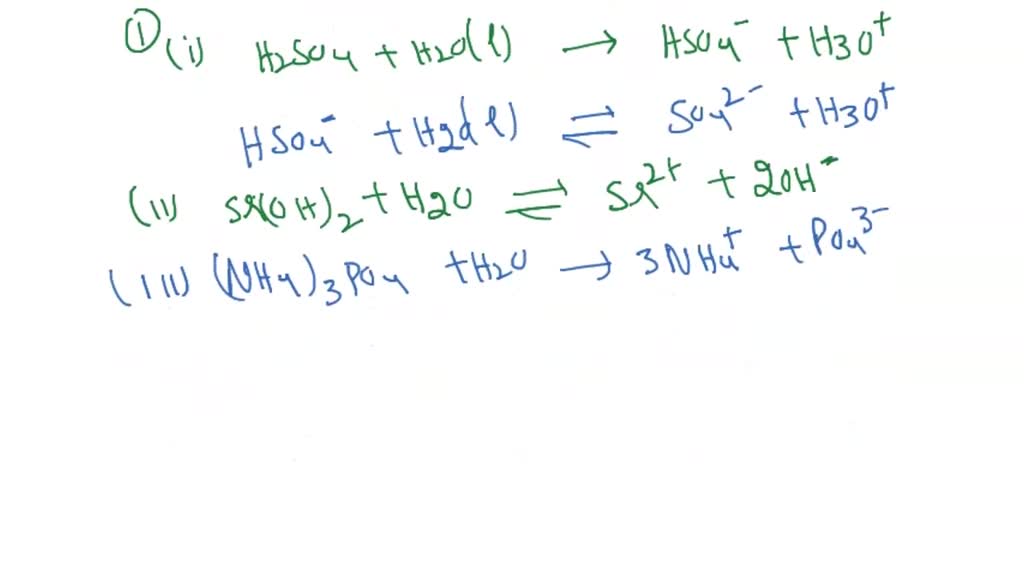 ① (i) H2SO4 + H2O(l) → HSO4⁻ + H3O⁺
HSO4⁻ + H2O(l) ⇌ SO4²⁻ + H3O⁺
(ii) Sr(OH)2 + H2O ⇌ Sr²⁺ + 2OH⁻
(iii) (NH4)3PO4 + H2O → 3NH4⁺ + PO4³⁻